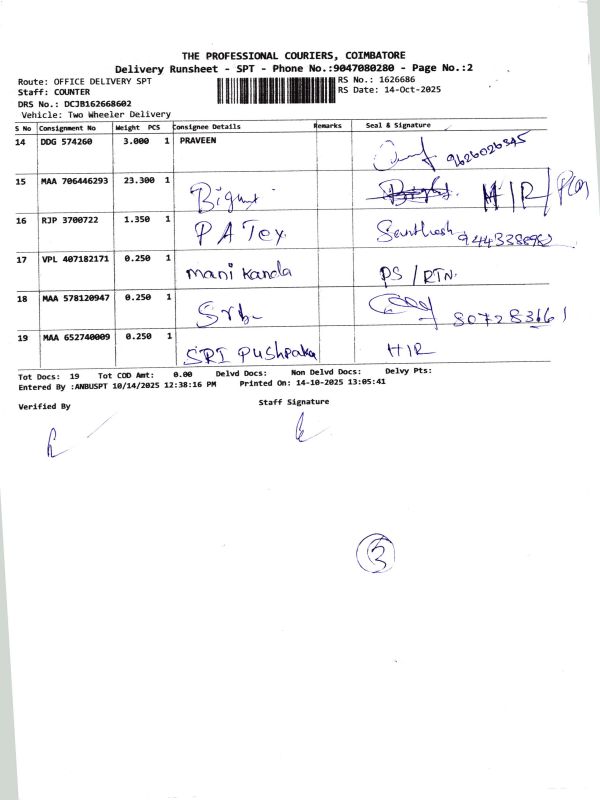 THE PROFESSIONAL COURIERS, COIMBATORE
Delivery Runsheet - SPT - Phone No.:9047080280 - Page No.:2
Route: OFFICE DELIVERY SPT
RS No.: 1626686
Staff: COUNTER
RS Date: 14-Oct-2025
DRS No.: DCJB162668602
Vehicle: Two Wheeler Delivery
S No Consignment No Weight PCS Consignee Details Remarks Seal & Signature
14 DDG 574260 3.000 1 PRAVEEN 9626026345
15 MAA 706446293 23.300 1 H/R/
16 RJP 3700722 1.350 1 PA Tex Santhosh
17 VPL 407182171 0.250 1 mani kanda PS / RTN.
18 MAA 578120947 0.250 1
19 MAA 652740009 0.250 1 SRI Pushpaka H/R
Tot Docs: 19 Tot COD Amt: 0.00 Delvd Docs: Non Delvd Docs: Delvy Pts:
Entered By :ANBUSPT 10/14/2025 12:38:16 PM Printed On: 14-10-2025 13:05:41
Verified By
Staff Signature